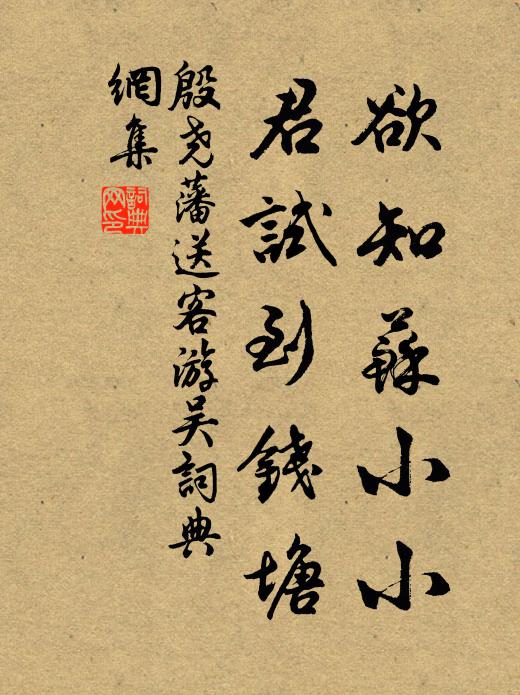 欲知蘇小小
君試到錢塘
殷堯藩送客游吴詞典
網集
詞典
网印